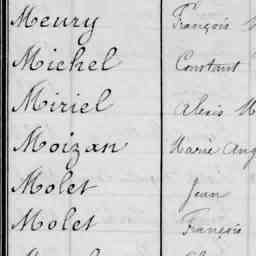 Meury François
Michel Constant
Miriel Alexis
Moizan Marie Ang
Molet Jean
Molet François